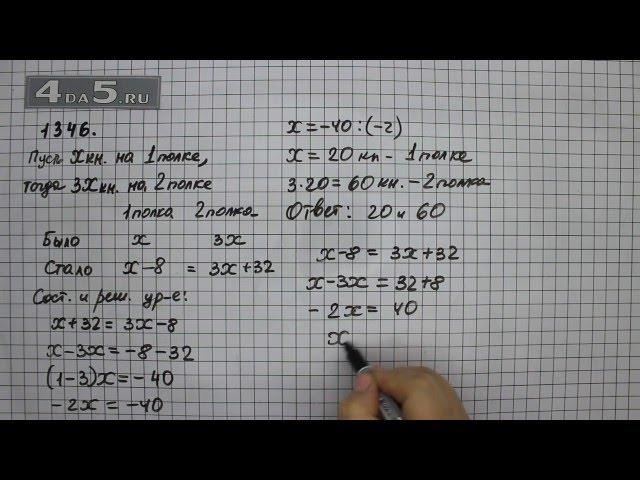 4DA5.RU
1346.
Пусть x кн. на 1 полке,
тогда 3x кн. на 2 полке
1 полка 2 полка
Было x 3x
Стало x-8 = 3x+32
Сост. и реш. ур-е:
x+32 = 3x-8
x-3x = -8-32
(1-3)x = -40
-2x = -40
x = -40 : (-2)
x = 20 кн - 1 полке
3·20 = 60 кн. - 2 полка
Ответ: 20 и 60
x-8 = 3x+32
x-3x = 32+8
-2x = 40
x